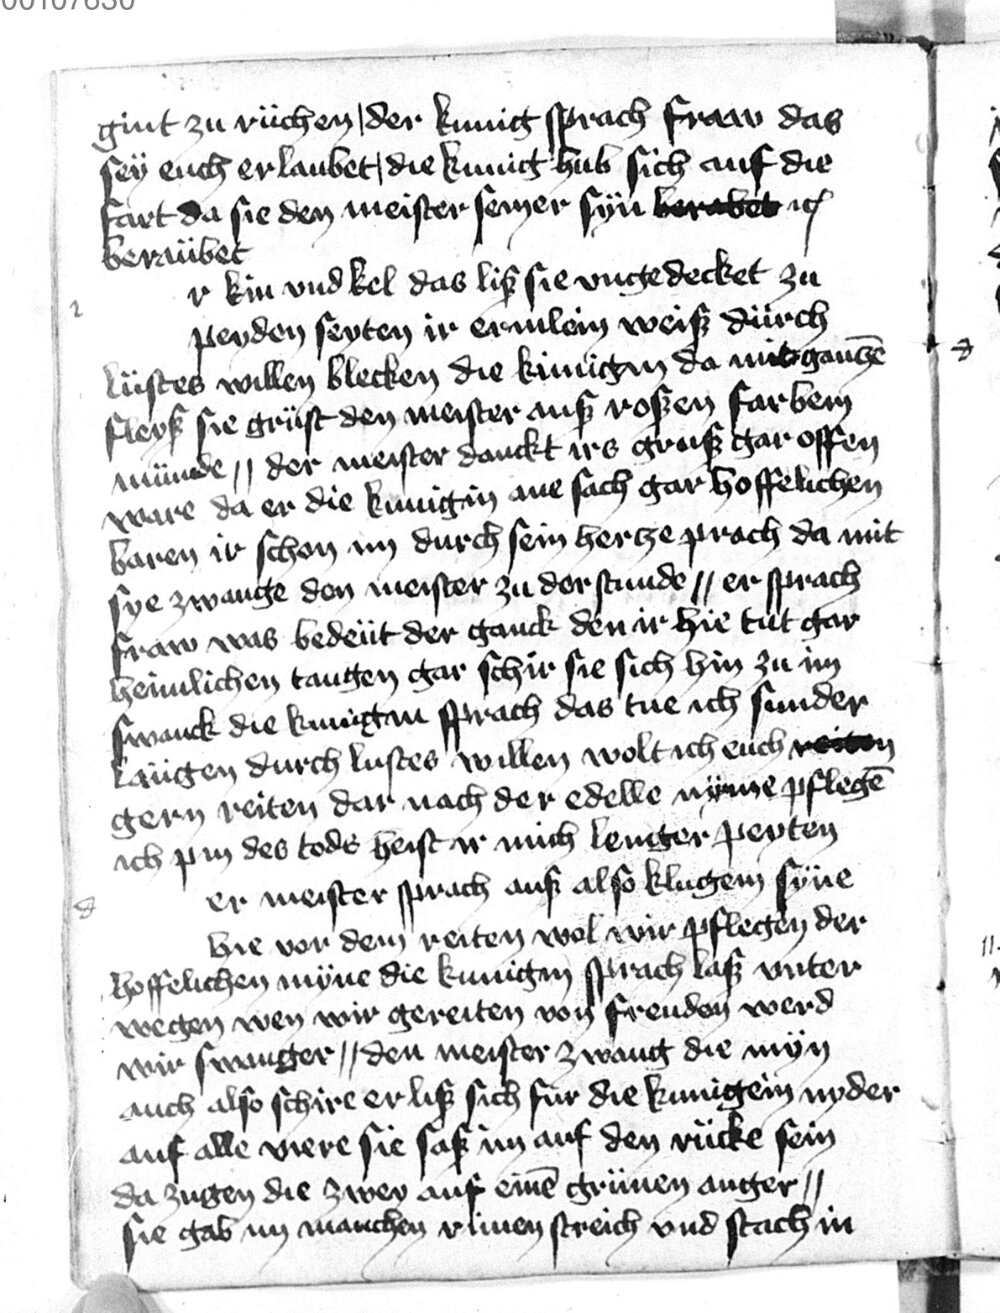 gint zu rüchen | der kunig sprach fraw das
seÿ euch erlaubet | die kunig hub sich auf die
fart da sie den meister seiner sÿn berabet ich
beraübet
r kin vnd kel das liß sie vngedecket zu
peyden seyten ir ermlein weiß dürch
lüstes willen blecken die kunigin da mit gancze
fleyß sie grüst den meister auß roßen farbem
münde // der meister danckt irs gruß gar offen
ware da er die kunigin ane sach gar hoffelichen
baren ir schon im durch sein hertze prach da mit
sye zwange den meister zu der stunde // er sprach
fraw was bedeüt der ganck den ir hie tüt gar
heimlichen taugen gar schir sie sich hin zu im
swanck die kunigin sprach das tue ich sunder
laügen durch lustes willen wolt ich euch reiten
gern reiten dar nach der edelle mÿnne pflegē
ich pin des tods heist ir mich lenger peyten
er meister sprach auß also klugem sÿne
hie vor dem reiten wol wir pflegen der
hoffelichen mÿne die kunigin sprach laß vnter
wegen wen wir gereiten von freuden werd
wir swanger // den meister zwang die mÿn
auch also schire er liß sich für die kunigein nyder
auf alle viere sie saß im auf den rücke sein
da zugen die zwey auf einē grünen anger //
sie gab im manchen rlinen streich vnd stach in